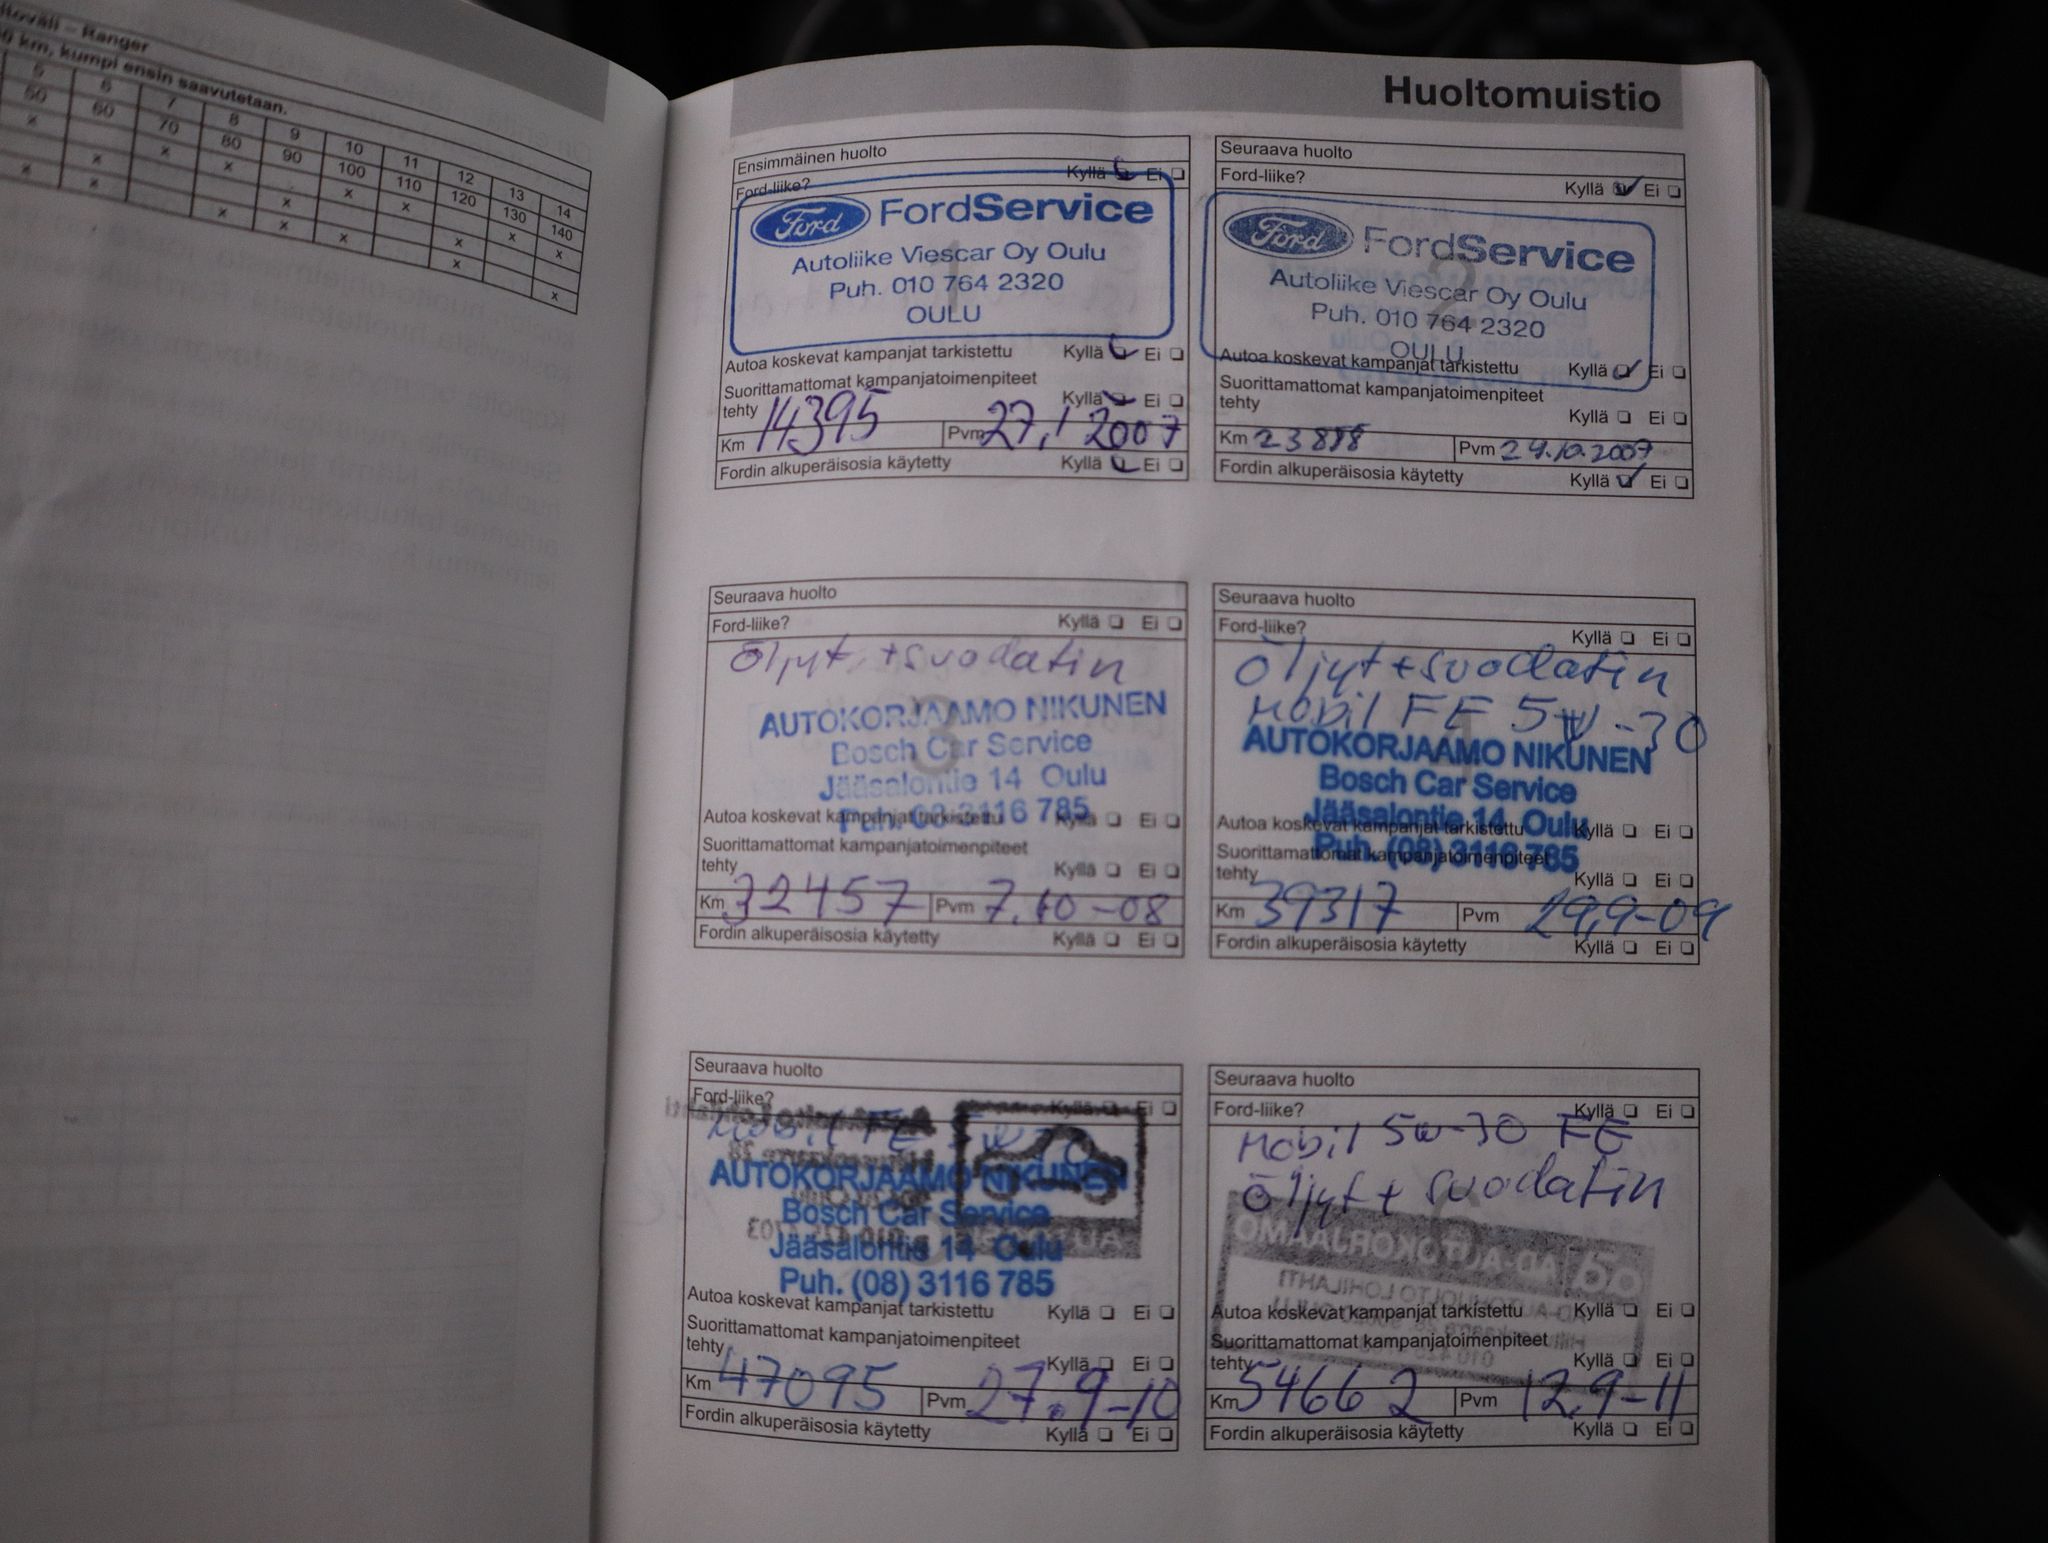 ltoväli – Ranger
km, kumpi ensin saavutetaan.
5 6 7 8 9 10 11 12 13 14
50 60 70 80 90 100 110 120 130 140
Huoltomuistio
Ensimmäinen huolto
Ford-liike? Kyllä Ei
Ford FordService
Autoliike Viescar Oy Oulu
Puh. 010 764 2320
OULU
Autoa koskevat kampanjat tarkistettu Kyllä Ei
Suorittamattomat kampanjatoimenpiteet
tehty Kyllä Ei
Km 14395 Pvm 27.1 2007
Fordin alkuperäisosia käytetty Kyllä Ei
Seuraava huolto
Ford-liike? Kyllä Ei
2
Ford FordService
Autoliike Viescar Oy Oulu
Puh. 010 764 2320
OULU
Autoa koskevat kampanjat tarkistettu Kyllä Ei
Suorittamattomat kampanjatoimenpiteet
tehty Kyllä Ei
Km 23888 Pvm 24.10.2007
Fordin alkuperäisosia käytetty Kyllä Ei
Seuraava huolto
Ford-liike? Kyllä Ei
Öljyt +suodatin
3
AUTOKORJAAMO NIKUNEN
Bosch Car Service
Jääsalontie 14 Oulu
Puh. 08 3116 785
Autoa koskevat kampanjat tarkistettu Kyllä Ei
Suorittamattomat kampanjatoimenpiteet
tehty Kyllä Ei
Km 32457 Pvm 7.10-08
Fordin alkuperäisosia käytetty Kyllä Ei
Seuraava huolto
Ford-liike? Kyllä Ei
Öljyt+suodatin
Mobil FE 5W-30
AUTOKORJAAMO NIKUNEN
Bosch Car Service
Jääsalontie 14 Oulu
Puh. (08) 3116 785
Autoa koskevat kampanjat tarkistettu Kyllä Ei
Suorittamattomat kampanjatoimenpiteet
tehty Kyllä Ei
Km 39317 Pvm 29.9-09
Fordin alkuperäisosia käytetty Kyllä Ei
Seuraava huolto
Ford-liike? Kyllä Ei
Mobil FE 5W-30
AUTOKORJAAMO NIKUNEN
Bosch Car Service
Jääsalontie 14 Oulu
Puh. (08) 3116 785
Autoa koskevat kampanjat tarkistettu Kyllä Ei
Suorittamattomat kampanjatoimenpiteet
tehty Kyllä Ei
Km 47095 Pvm 27.9-10
Fordin alkuperäisosia käytetty Kyllä Ei
Seuraava huolto
Ford-liike? Kyllä Ei
Mobil 5w-30 FE
Öljyt+ suodatin
AD-AUTOKORJAAMO
Autoa koskevat kampanjat tarkistettu Kyllä Ei
Suorittamattomat kampanjatoimenpiteet
tehty Kyllä Ei
Km 54662 Pvm 12.9-11
Fordin alkuperäisosia käytetty Kyllä Ei